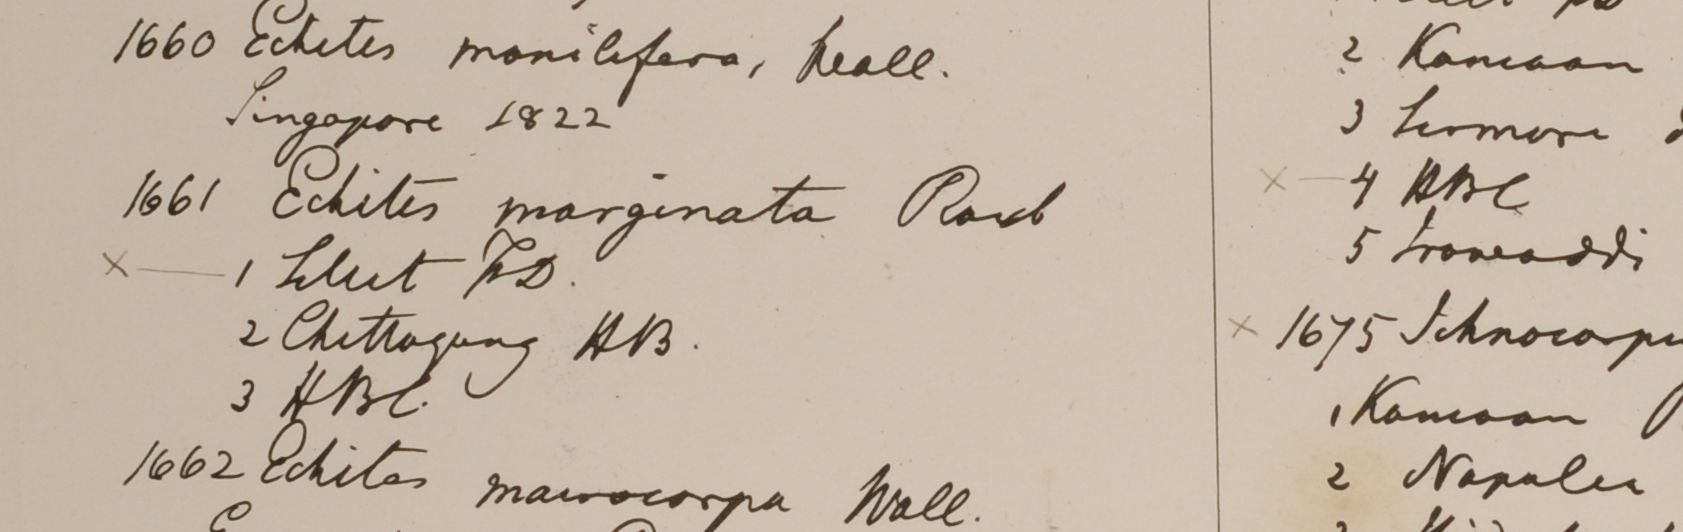 1660 Echites monilifera, Wall.
Singapore 1822
1661 Echites marginata Roxb
× 1 Silhet FD.
2 Chittagung HB.
3 HBC.
1662 Echites macrocarpa Wall.
2 Kamaon
3
× 4 HBC
5 Irawaddi
× 1675 Ichnocarpu
1 Kamaon
2 Napalia